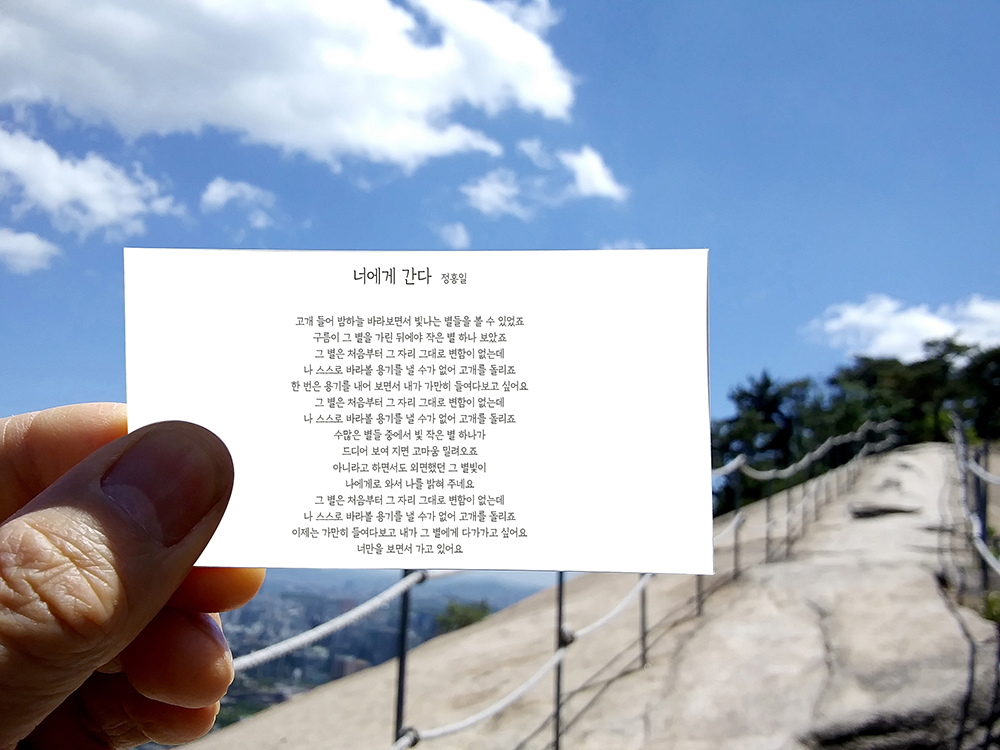 너에게 간다 정홍일
고개 들어 밤하늘 바라보면서 빛나는 별들을 볼 수 있었죠
구름이 그 별을 가린 뒤에야 작은 별 하나 보았죠
그 별은 처음부터 그 자리 그대로 변함이 없는데
나 스스로 바라볼 용기를 낼 수가 없어 고개를 돌리죠
한 번은 용기를 내어 보면서 내가 가만히 들여다보고 싶어요
그 별은 처음부터 그 자리 그대로 변함이 없는데
나 스스로 바라볼 용기를 낼 수가 없어 고개를 돌리죠
수많은 별들 중에서 빛 작은 별 하나가
드디어 보여 지면 고마움 밀려오죠
아니라고 하면서도 외면했던 그 별빛이
나에게로 와서 나를 밝혀 주네요
그 별은 처음부터 그 자리 그대로 변함이 없는데
나 스스로 바라볼 용기를 낼 수가 없어 고개를 돌리죠
이제는 가만히 들여다보고 내가 그 별에게 다가가고 싶어요
너만을 보면서 가고 있어요